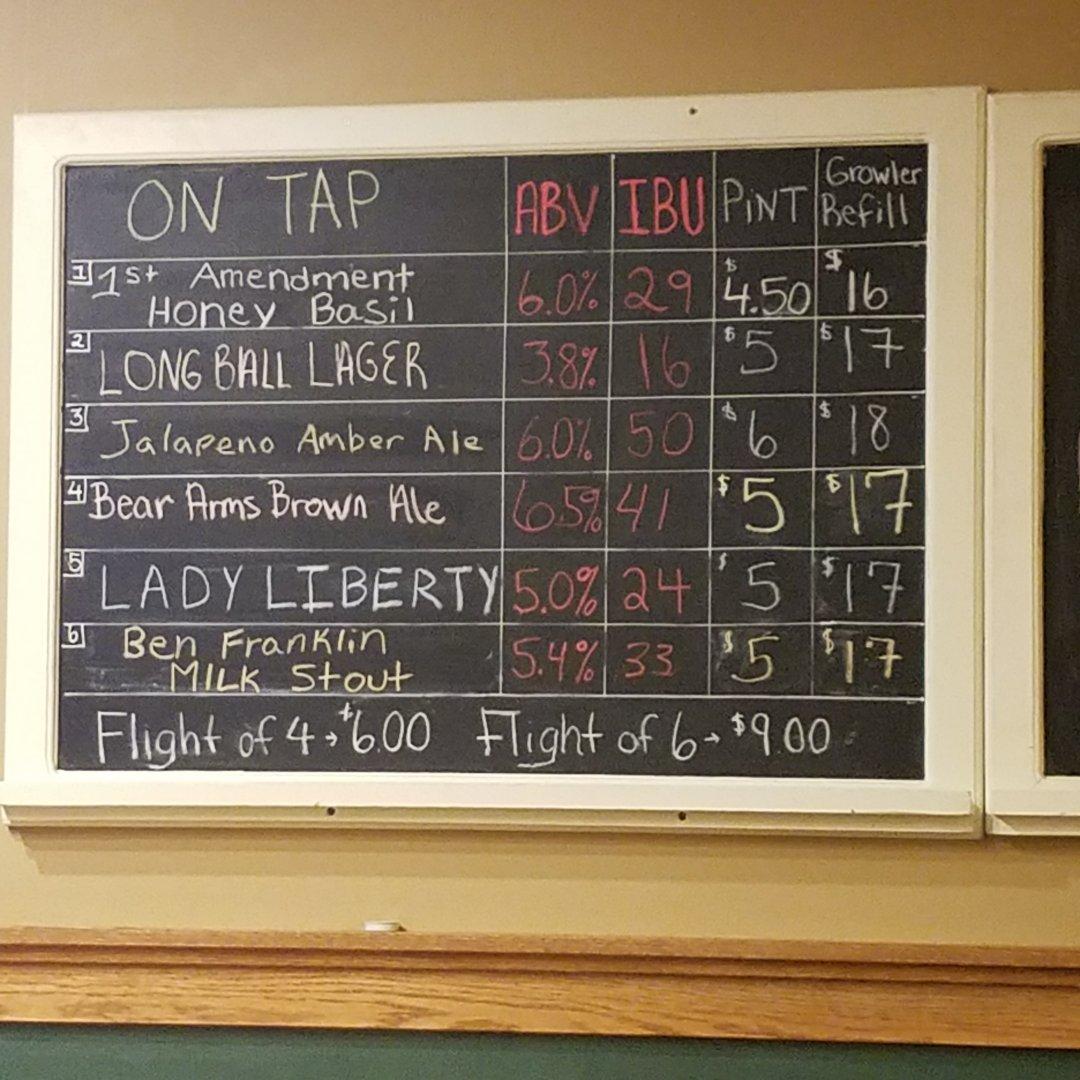 ON TAP ABV IBU PiNT Growler Refill
1 1st Amendment Honey Basil 6.0% 29 $4.50 $16
2 LONG BALL LAGER 3.8% 16 $5 $17
3 Jalapeno Amber Ale 6.0% 50 $6 $18
4 Bear Arms Brown Ale 6.5% 41 $5 $17
5 LADY LIBERTY 5.0% 24 $5 $17
6 Ben Franklin MILK Stout 5.4% 33 $5 $17
Flight of 4→$6.00 Flight of 6→$9.00